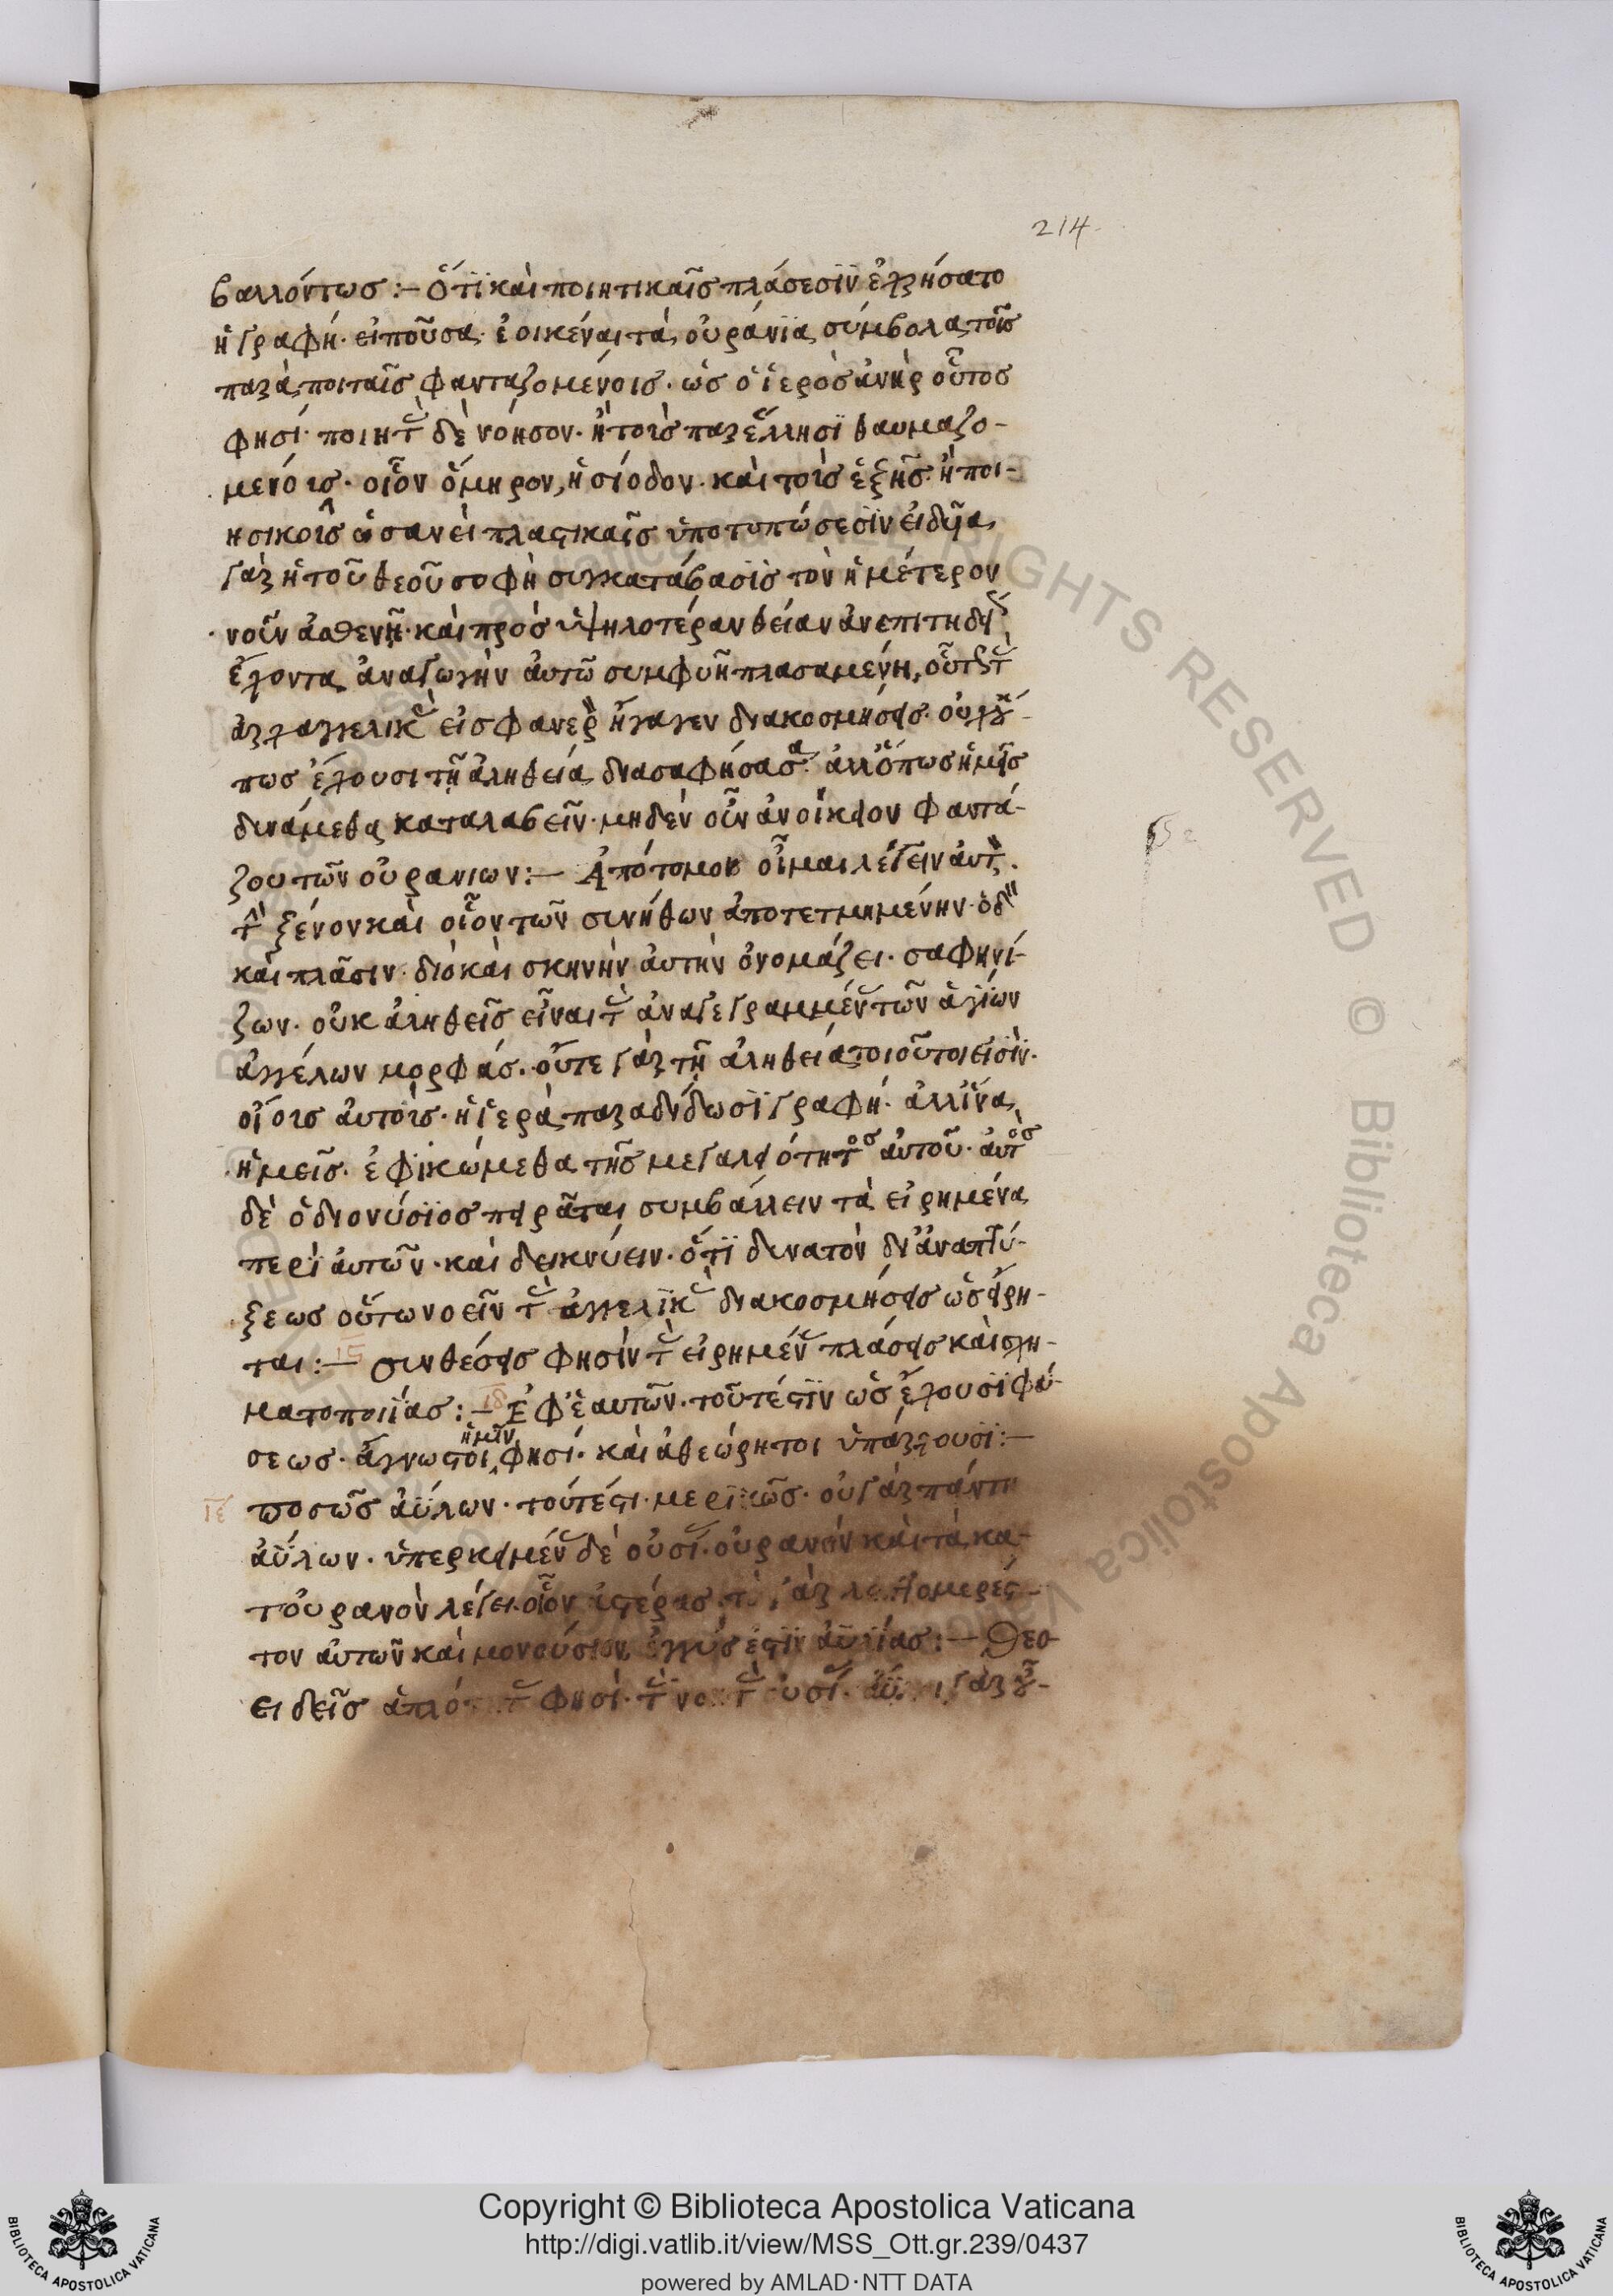 214
βαλλόντως :– Ὅτι καὶ ποιητικαῖς πλάσεσιν ἐχρήσατο
ἡ γραφὴ. εἰποῦσα. ἐοικέναι τὰ οὐράνια σύμβολα τοῖς
παρὰ ποιταῖς φανταζομένοις. ὡς ὁ ἱερὸς ἀνὴρ οὗτος
φησί. ποιητ(ὰς) δὲ νόησον. ἢ τοὺς παρ' ἕλλησι θαυμαζο-
μένοις. οἷον ὅμηρον, ἡσίοδον. καὶ τοὺς ἑξῆς. ἢ ποι-
ησικοῖς ὡσανεὶ πλαστικαῖς ὑποτυπώσεσιν
γὰρ ἡ τοῦ θεοῦ σοφὴ συγκατάβασις τὸν ἡμέτερον
νοῦν ἀσθενῆ. καὶ πρὸς ὑψηλοτέραν θείαν ἀνεπιτηδεί(ως)
ἔχοντα ἀναγωγὴν αὐτῶ συμφυῆ πλασαμένη, οὕτω τ(ὰς)
ἀρχαγγελικ(ὰς) εἰς φανερ(ὸν) ἤγαγεν διακοσμήσεις. οὐχ
πως ἔχουσι τῇ ἀληθεία διασαφήσασα. ἀλλ' ὅπως ἡμεῖς
δυνάμεθα καταλαβεῖν. μηδὲν οὖν ἀνοίκειον φαντά-
ζου τῶν οὐρανίων :– Ἀπότομον οἶμαι λέγειν αὐτ(ὸν).
τ(ὸ) ξένον καὶ οἷον τῶν συνήθων ἀποτετμημένην
καὶ πλᾶσιν. διὸ καὶ σκηνὴν αὐτὴν ὀνομάζει. σαφηνί-
ζων. οὐκ ἀληθεῖς εἶναι τ(ὰς) ἀναγεγραμμέν(ας) τῶν ἁγίων
ἀγγέλων μορφάς. οὔτε γὰρ τῇ ἀληθεία τοιοῦτοι εἰσὶν.
οἵοις αὐτοὺς. ἡ ἱερὰ παραδίδωσι γραφή. ἀλλ' ἵνα
ἡμεῖς. ἐφικώμεθα τῆς μεγαλειότητος αὐτοῦ. αὐτὸς
δὲ ὁ διονύσιος πειρᾶται συμβάλλειν τὰ εἰρημένα
περὶ αὐτῶν. καὶ δεικνύειν. ὅτι δυνατὸν δι' ἀναπτύ-
ξεως οὕτω νοεῖν τ(ὰς) ἀγγελικ(ὰς) διακοσμήσεις ὡς εἴρη-
ται :– συνθέσεις φησὶν τ(ὰς) εἰρημέν(ας) πλάσεις καὶ σχη-
ματοποιίας :– Ἐφ' ἑαυτῶν. τοῦτέστιν ὡς ἔχουσι φύ-
σεως. ἄγνωστοι ἡμῖν φησί. καὶ ἀθεώρητοι ὑπάρχουσι :–
ποσῶς ἀΰλων. τοῦτέστι. μερικῶς. οὐ γὰρ πάντη
ἀΰλων. ὑπερκειμέν(ας) δὲ οὐσί(ας). οὐρανὸν καὶ τὰ κα-
τ' οὐρανὸν λέγει. οἷον ἀστέρας. τὸ γὰρ λεπτομερέσ-
τον αὐτῶν καὶ μονούσιον ἐγγύς ἐστιν ἀϋλίας :– Θεο-
ειδεῖς ἁπλότ(η)τ(ας) φησὶ. τ(ὰς) νο τ(ὰς) οὐσί(ας). γὰρ
Copyright © Biblioteca Apostolica Vaticana
http://digi.vatlib.it/view/MSS_Ott.gr.239/0437
powered by AMLAD·NTT DATA
BIBLIOTECA APOSTOLICA VATICANA
BIBLIOTECA APOSTOLICA VATICANA